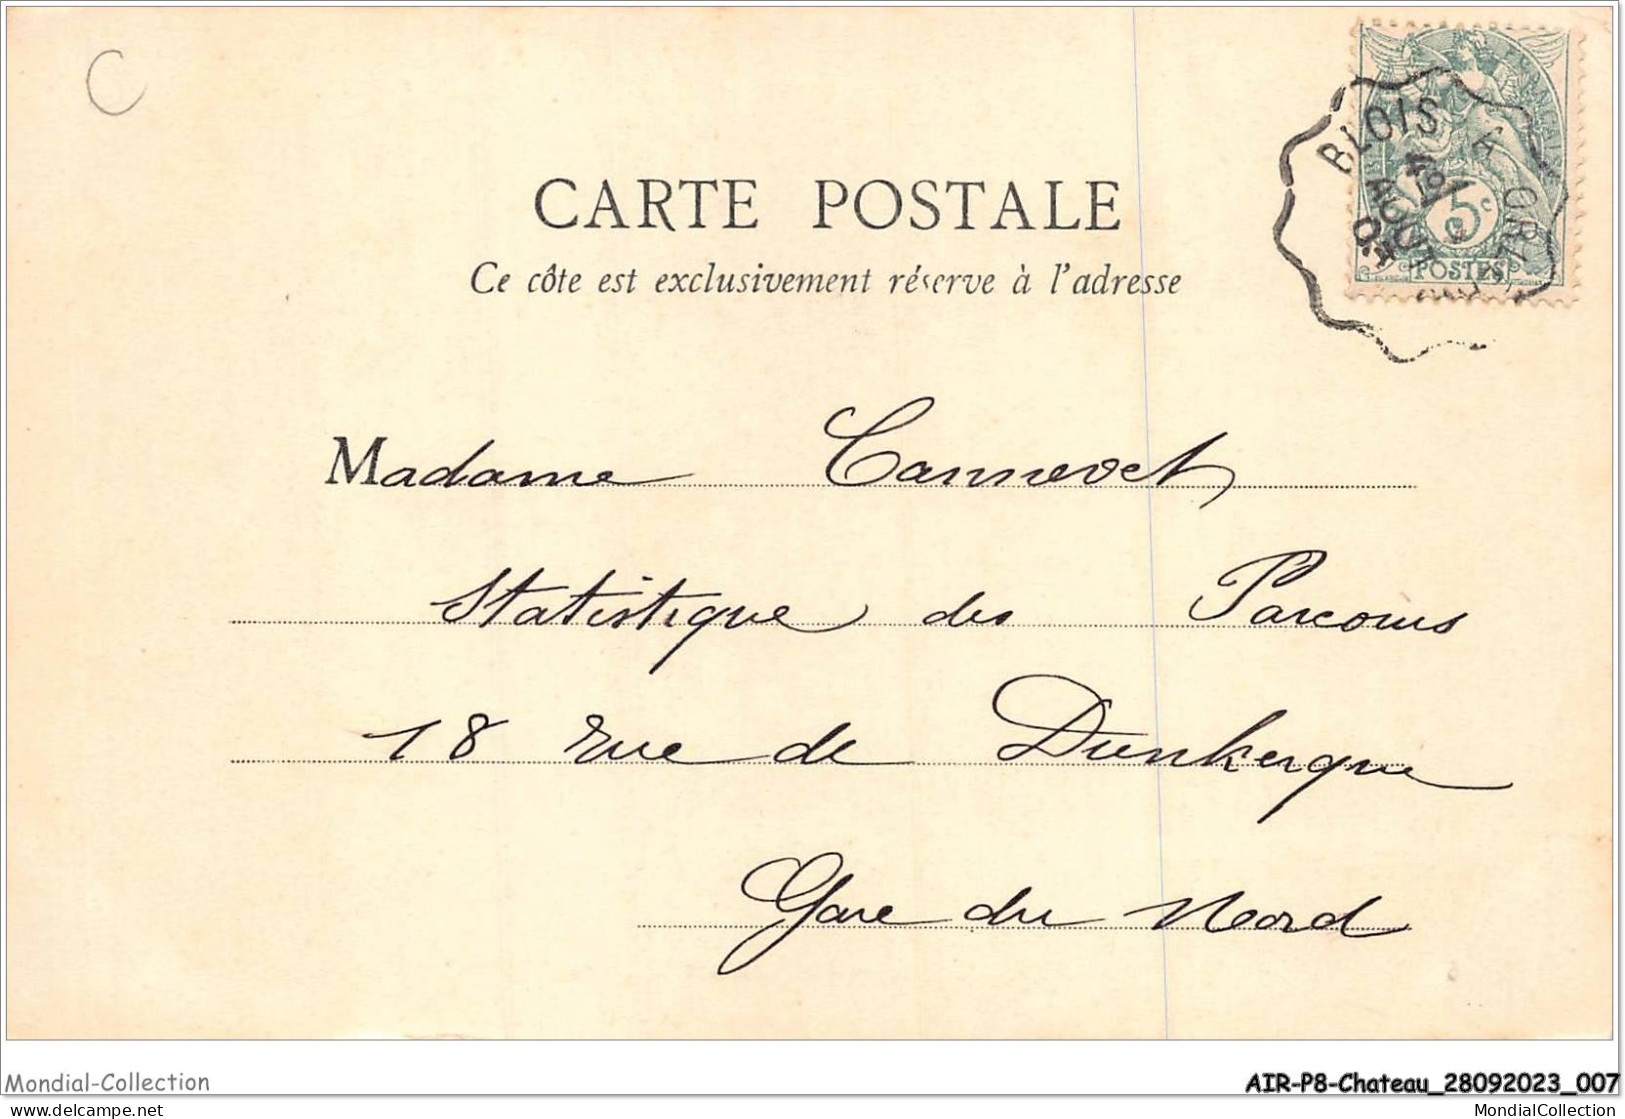 C
BLOIS A ORLEANS
AOUT
04
5c
POSTES
CARTE POSTALE
Ce côte est exclusivement réserve à l'adresse
Madame Cannevet
Statistique des Parcours
18 rue de Dunkerque
Gare du Nord
Mondial-Collection
AIR-P8-Chateau_28092023_007
www.delcampe.net
MondialCollection